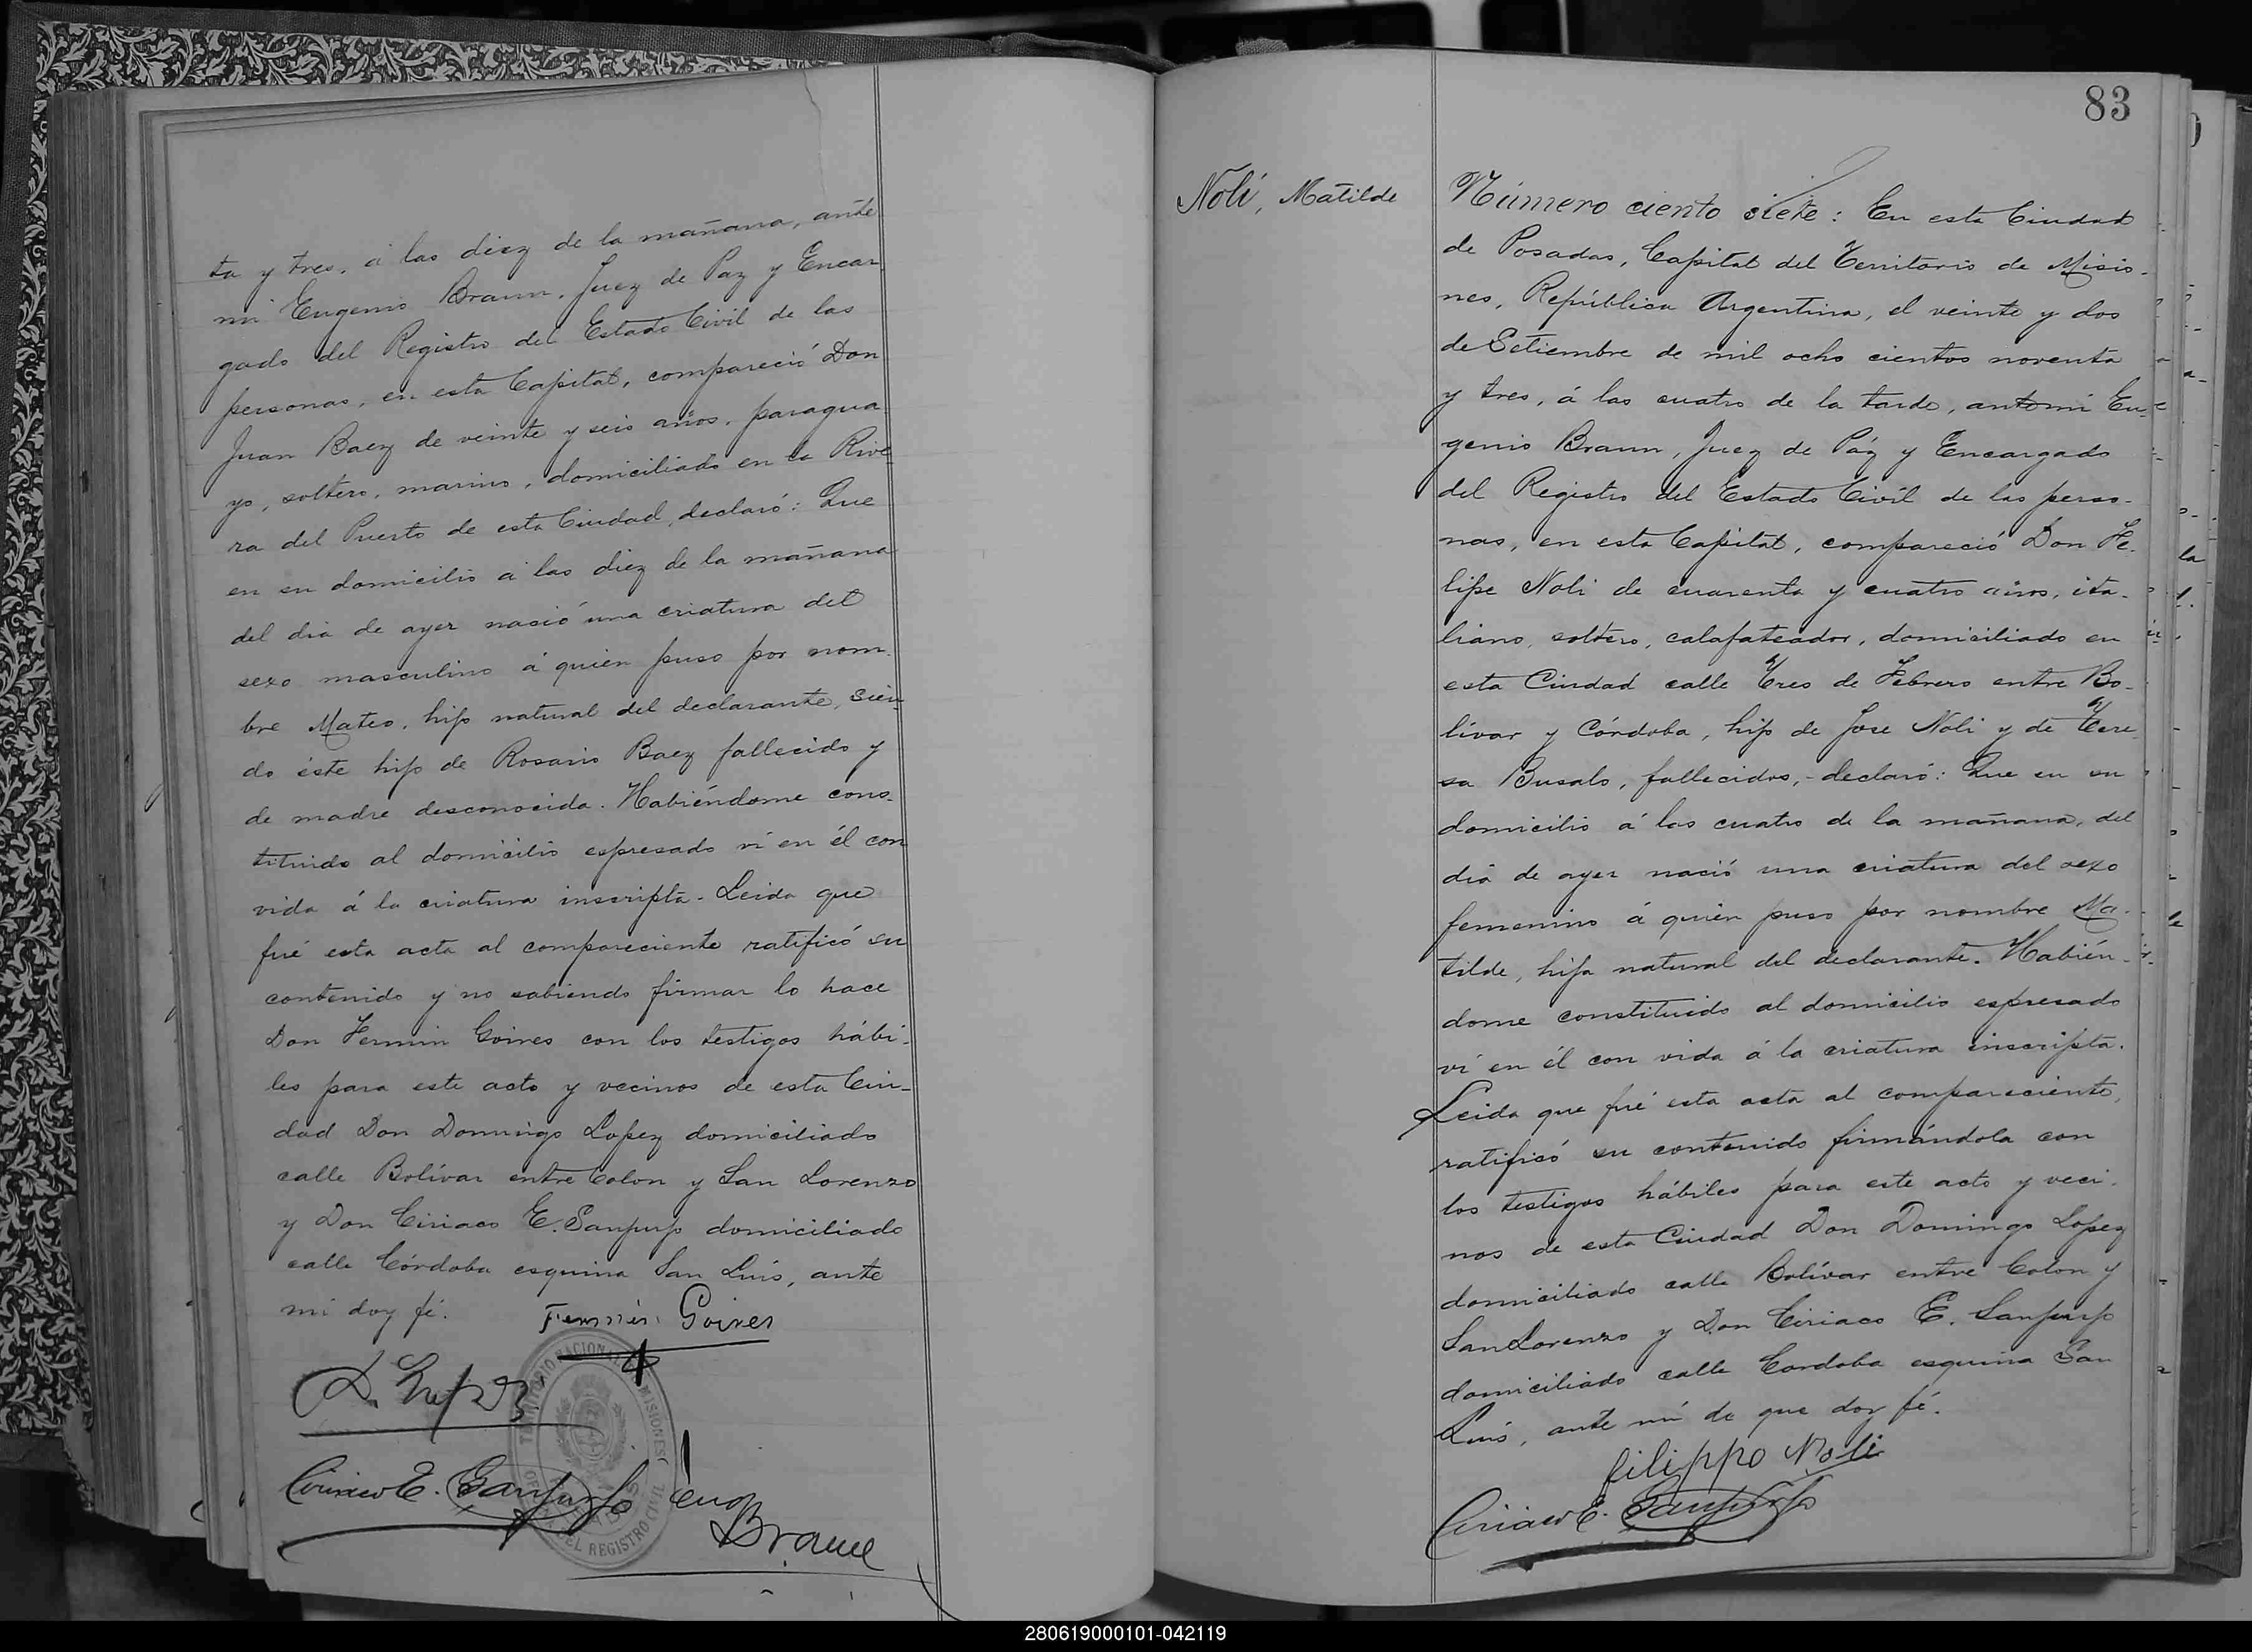 ta y tres, á las diez de la mañana, ante
mi Eugenio Braun, Juez de Paz y Encar
gado del Registro del Estado Civil de las
personas, en esta Capital, compareció Don
Juan Baez de veinte y seis años, paragua
yo, soltero, marino, domiciliado en la Rive
ra del Puerto de esta Ciudad, declaró: Que
en su domicilio á las diez de la mañana
del dia de ayer nació una criatura del
sexo masculino á quien puso por nom-
bre Mateo, hijo natural del declarante, sien
do éste hijo de Rosario Baez fallecido y
de madre desconocida. Habiéndome cons-
tituido al domicilio espresado ví en él con
vida á la criatura inscripta. Leida que
fué esta acta al compareciente ratificó su
contenido y no sabiendo firmar lo hace
Don Fermin Goires con los testigos hábi-
les para este acto y vecinos de esta Ciu-
dad Don Domingo Lopez domiciliado
calle Bolívar entre Colon y San Lorenzo
y Don Ciriaco E. Sanpurjo domiciliado
calle Córdoba esquina San Luis, ante
mi doy fé. Fermin Goires
D. Lopez
TERRITORIO NACIONAL MISIONES
DEL REGISTRO CIVIL
Ciriaco E. Sanpurjo Eug Braun
83
Noli, Matilde
Número ciento siete: En esta Ciudad
de Posadas, Capital del Territorio de Misio-
nes, República Argentina, el veinte y dos
de Setiembre de mil ocho cientos noventa
y tres, á las cuatro de la tarde, ante mi Eu-
genio Braun, Juez de Páz y Encargado
del Registro del Estado Civíl de las perso-
nas, en esta Capital, compareció Don Fe-
lipe Noli de cuarenta y cuatro años, ita-
liano, soltero, calafateador, domiciliado en
esta Ciudad calle Tres de Febrero entre Bo-
lívar y Córdoba, hijo de Jose Noli y de Tere
sa Busalo, fallecidos,- declaró: Que en su
domicilio á las cuatro de la mañana, del
dia de ayer nació una criatura del sexo
femenino á quien puso por nombre Ma-
tilde, hija natural del declarante. Habién-
dome constituido al domicilio espresado
ví en él con vida á la criatura inscripta.
Leida que fué esta acta al compareciente,
ratificó su contenido firmándola con
los testigos hábiles para este acto y veci-
nos de esta Ciudad Don Domingo Lopez
domiciliado calle Bolívar entre Colon y
San Lorenzo y Don Ciriaco E. Sanpurjo
domiciliado calle Cordoba esquina San
Luis, ante mí de que doy fé.
filippo Noli
Ciriaco E. Sanpurjo
280619000101-042119